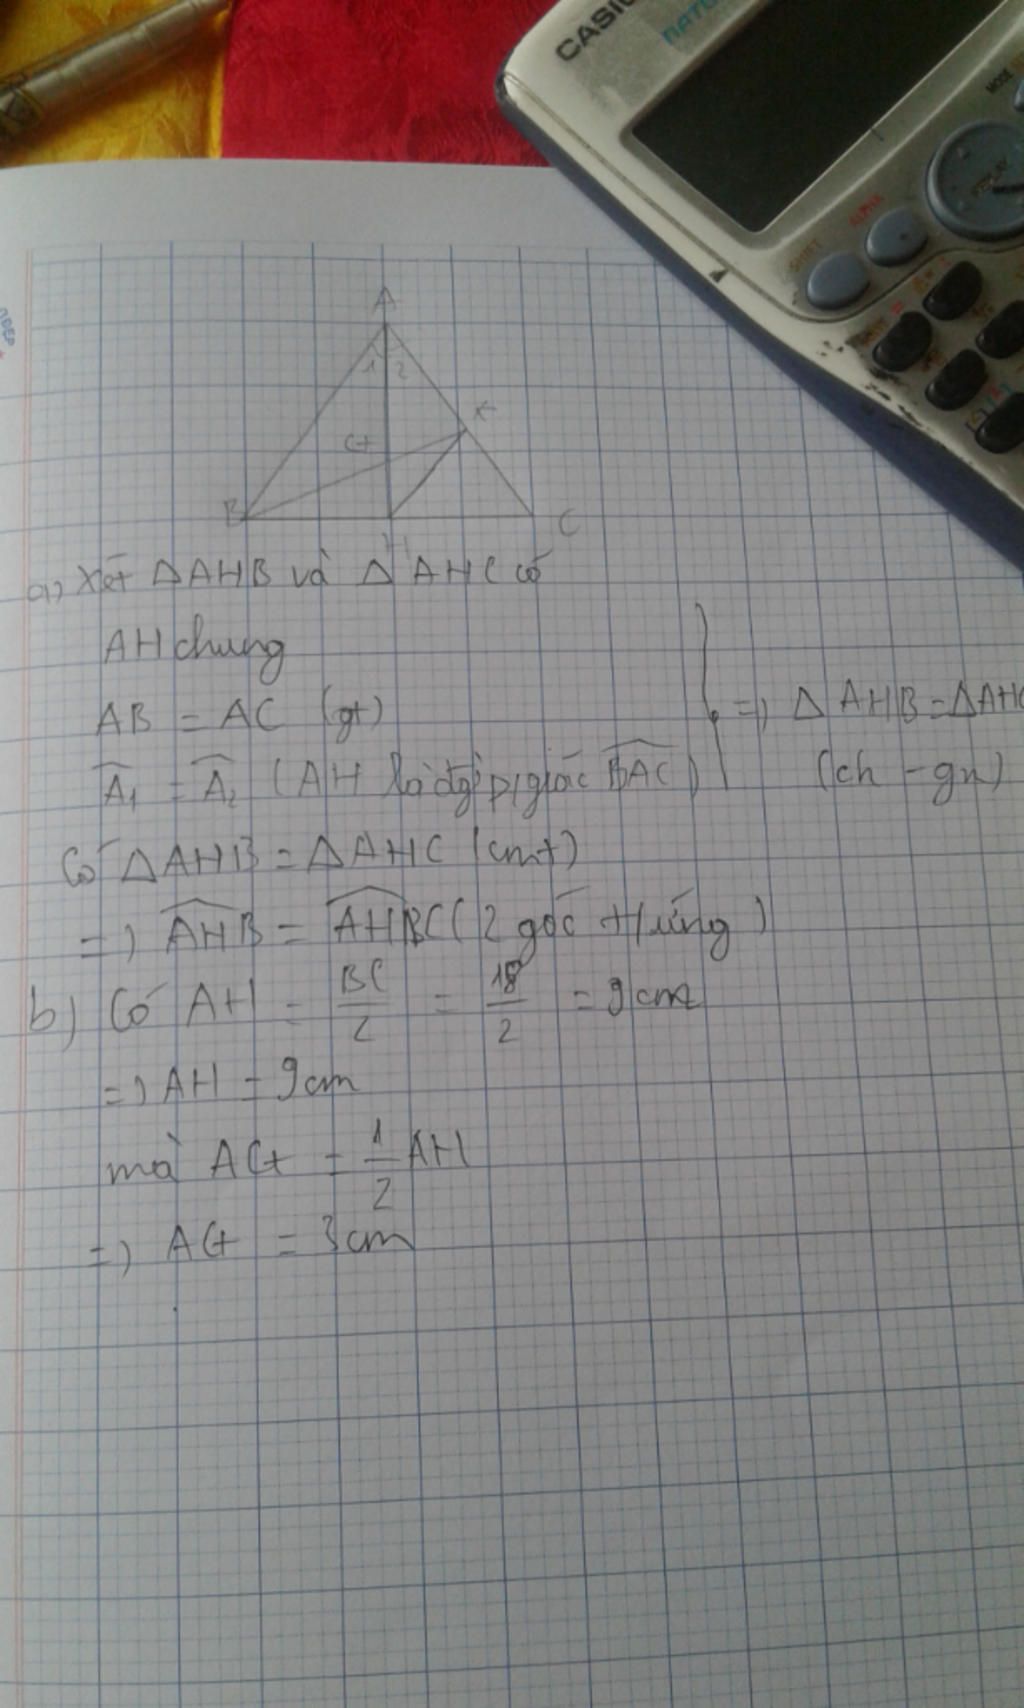 CASIO
NATU
MODE
REPLAY
ALPHA
SHIFT
A
1 2
K
G
B
H
C
a) Xét ΔAHB và ΔAHC có
AH chung
AB = AC (gt)
Â₁ = Â₂ (AH là đg p/giác \widehat{BAC})
=> ΔAHB = ΔAHC
(ch - gn)
Có ΔAHB = ΔAHC (cmt)
=> \widehat{AHB} = \widehat{AHBC} (2 góc t/ứng)
b) Có AH = BC/2 = 18/2 = 9cm
=> AH = 9cm
mà AG = 1/2 AH
=> AG = 3cm